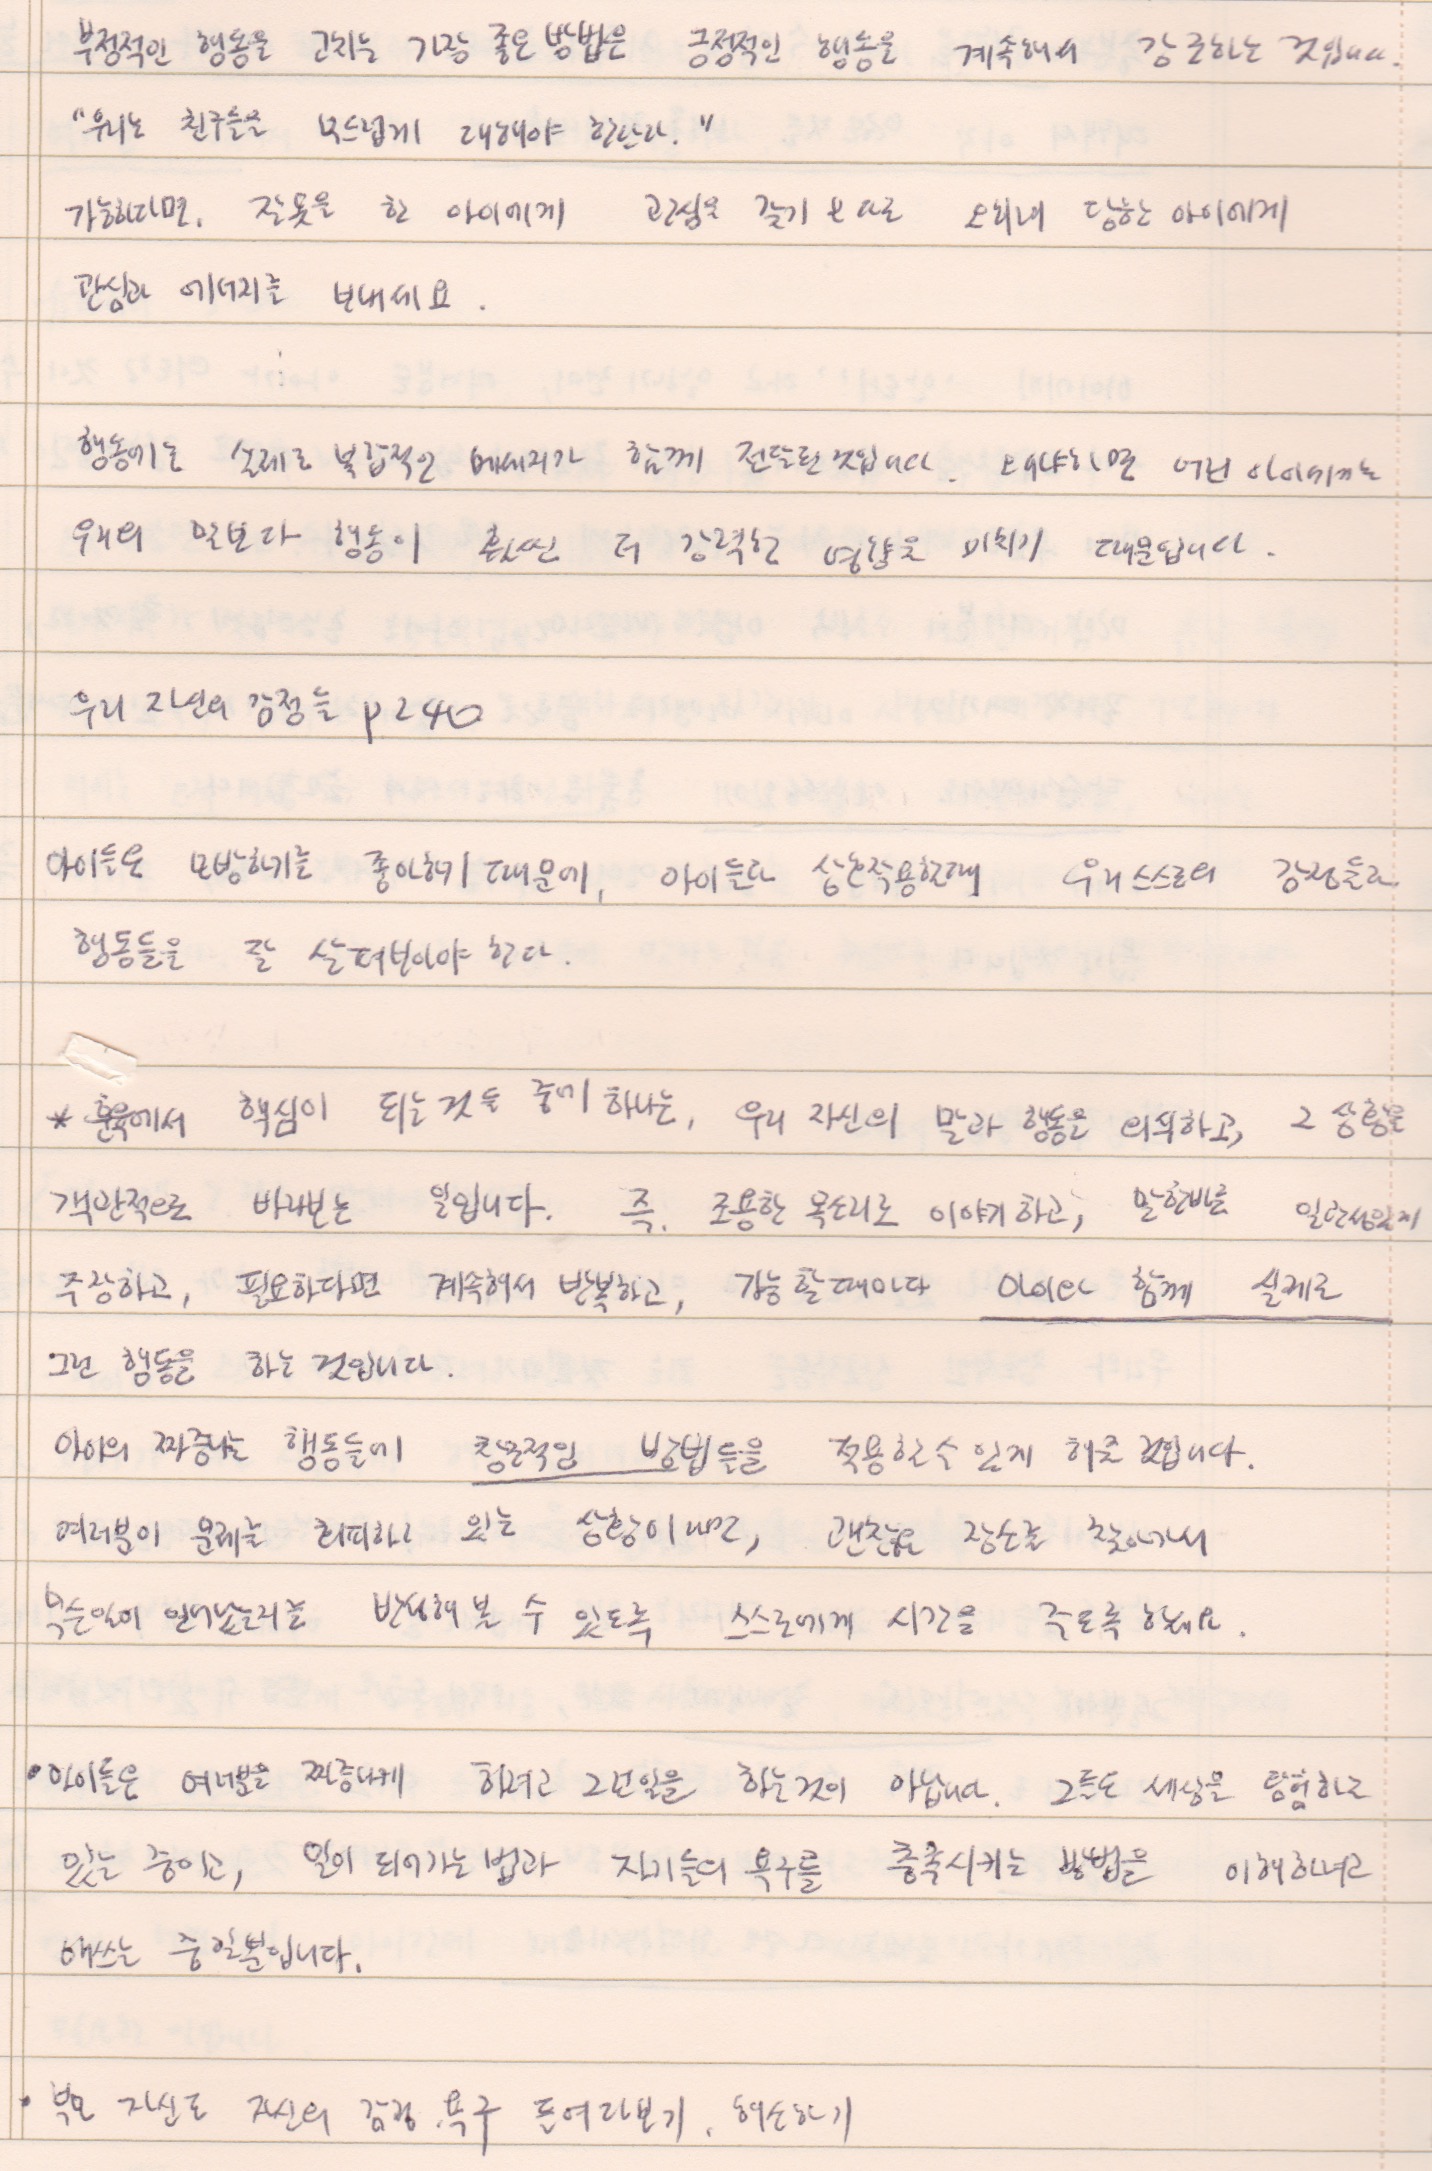 부정적인 행동을 고치는 가장 좋은 방법은 긍정적인 행동을 계속해서 강조하는 것입니다.
"우리는 친구들을 부드럽게 대해야 한단다."
가능하다면, 잘못을 한 아이에게 관심을 갖기 보다는 오히려 당하는 아이에게
관심과 에너지를 보내세요.
행동에는 실제로 복합적인 메세지가 함께 전달된 것입니다. 왜냐하면 어린 아이에게는
우리의 말보다 행동이 훨씬 더 강력한 영향을 미치기 때문입니다.
우리 자신의 감정들 p240
아이들은 모방하기를 좋아하기 때문에, 아이들과 상호작용할때 우리 스스로의 감정들과
행동들을 잘 살펴보아야 한다.
* 훈육에서 핵심이 되는 것들 중에 하나는, 우리 자신의 말과 행동을 의식하고, 그 상황을
객관적으로 바라보는 일입니다. 즉, 조용한 목소리로 이야기 하고, 말한바를 일관성있게
주장하고, 필요하다면 계속해서 반복하고, 가능할때마다 아이와 함께 실제로
그런 행동을 하는 것입니다.
아이의 짜증나는 행동들에 창조적인 방법들을 적용할 수 있게 해줄 것입니다.
여러분이 문제를 회피하고 있는 상황이라면, 괜찮은 장소를 찾아가서
무슨일이 일어났는지를 반성해 볼 수 있도록 스스로에게 시간을 주도록 하세요.
• 아이들은 여러분을 짜증나게 하려고 그런일을 하는것이 아닙니다. 그들도 세상을 탐험하고
있는 중이고, 일이 되어가는 법과 자기들의 욕구를 충족시키는 방법을 이해하려고
애쓰는 중일뿐입니다.
• 부모 자신도 자신의 감정, 욕구 들여다보기, 해소하기